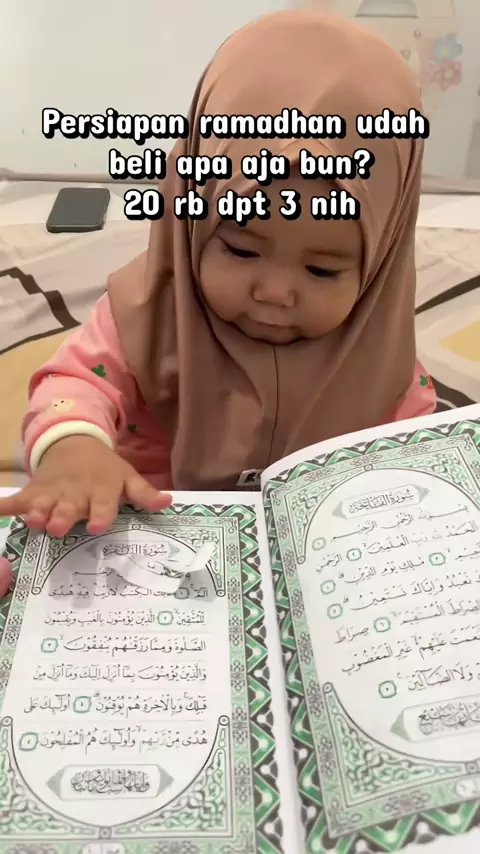 Persiapan ramadhan udah
beli apa aja bun?
20 rb dpt 3 nih
الْكِتٰبُ لَا رَيْبَ فِيْهِ هُدًى
لِّلْمُتَّقِيْنَ ٢ الَّذِيْنَ يُؤْمِنُوْنَ بِالْغَيْبِ وَيُقِيْمُوْنَ
الصَّلٰوةَ وَمِمَّا رَزَقْنٰهُمْ يُنْفِقُوْنَ ٣
وَالَّذِيْنَ يُؤْمِنُوْنَ بِمَآ اُنْزِلَ اِلَيْكَ وَمَآ اُنْزِلَ مِنْ
قَبْلِكَ وَبِالْاٰخِرَةِ هُمْ يُوْقِنُوْنَ ٤ اُولٰۤىِٕكَ عَلٰى
هُدًى مِّنْ رَّبِّهِمْ وَاُولٰۤىِٕكَ هُمُ الْمُفْلِحُوْنَ ٥
سُوْرَةُ الْفَاتِحَةِ
بِسْمِ اللّٰهِ الرَّحْمٰنِ الرَّحِيْمِ
اَلْحَمْدُ لِلّٰهِ رَبِّ الْعٰلَمِيْنَ ٢ الرَّحْمٰنِ
مٰلِكِ يَوْمِ الدِّيْنِ ٤
نَعْبُدُ وَاِيَّاكَ نَسْتَعِيْنُ ٥
الصِّرَاطَ الْمُسْتَقِيْمَ ٦ صِرَاطَ
عَلَيْهِمْ غَيْرِ الْمَغْضُوْبِ
وَلَا الضَّاۤلِّيْنَ ٧